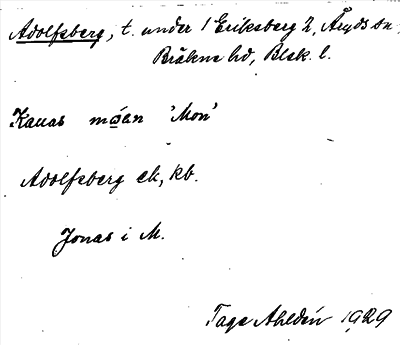 Adolfsberg, t. under 1 Eriksberg 2, Åryds sn,
Bräkne hd, Blek. l.
Kauas møen 'Mon'
Adolfsberg ek, kb.
Jonas i M.
Tage Ahldén 1929